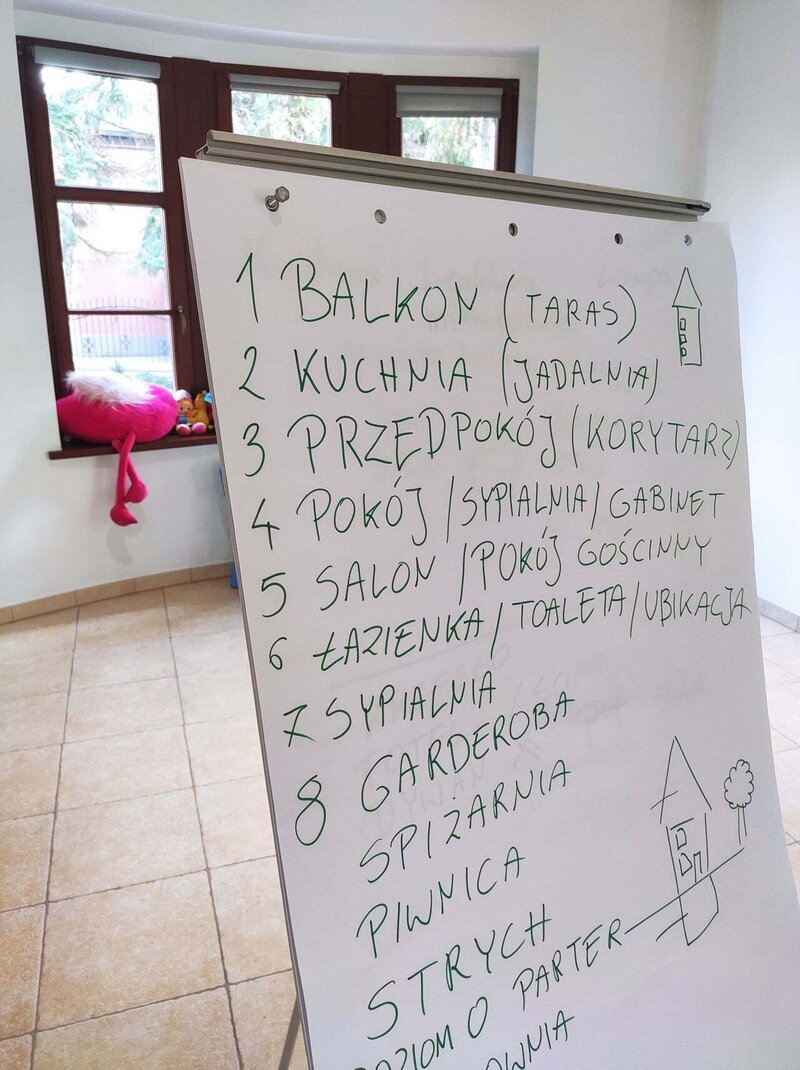 1 BALKON (TARAS)
2 KUCHNIA (JADALNIA)
3 PRZEDPOKÓJ (KORYTARZ)
4 POKÓJ/SYPIALNIA/GABINET
5 SALON/POKÓJ GOŚCINNY
6 ŁAZIENKA/TOALETA/UBIKACJA
7 SYPIALNIA
8 GARDEROBA
SPIŻARNIA
PIWNICA
STRYCH
POZIOM O PARTER